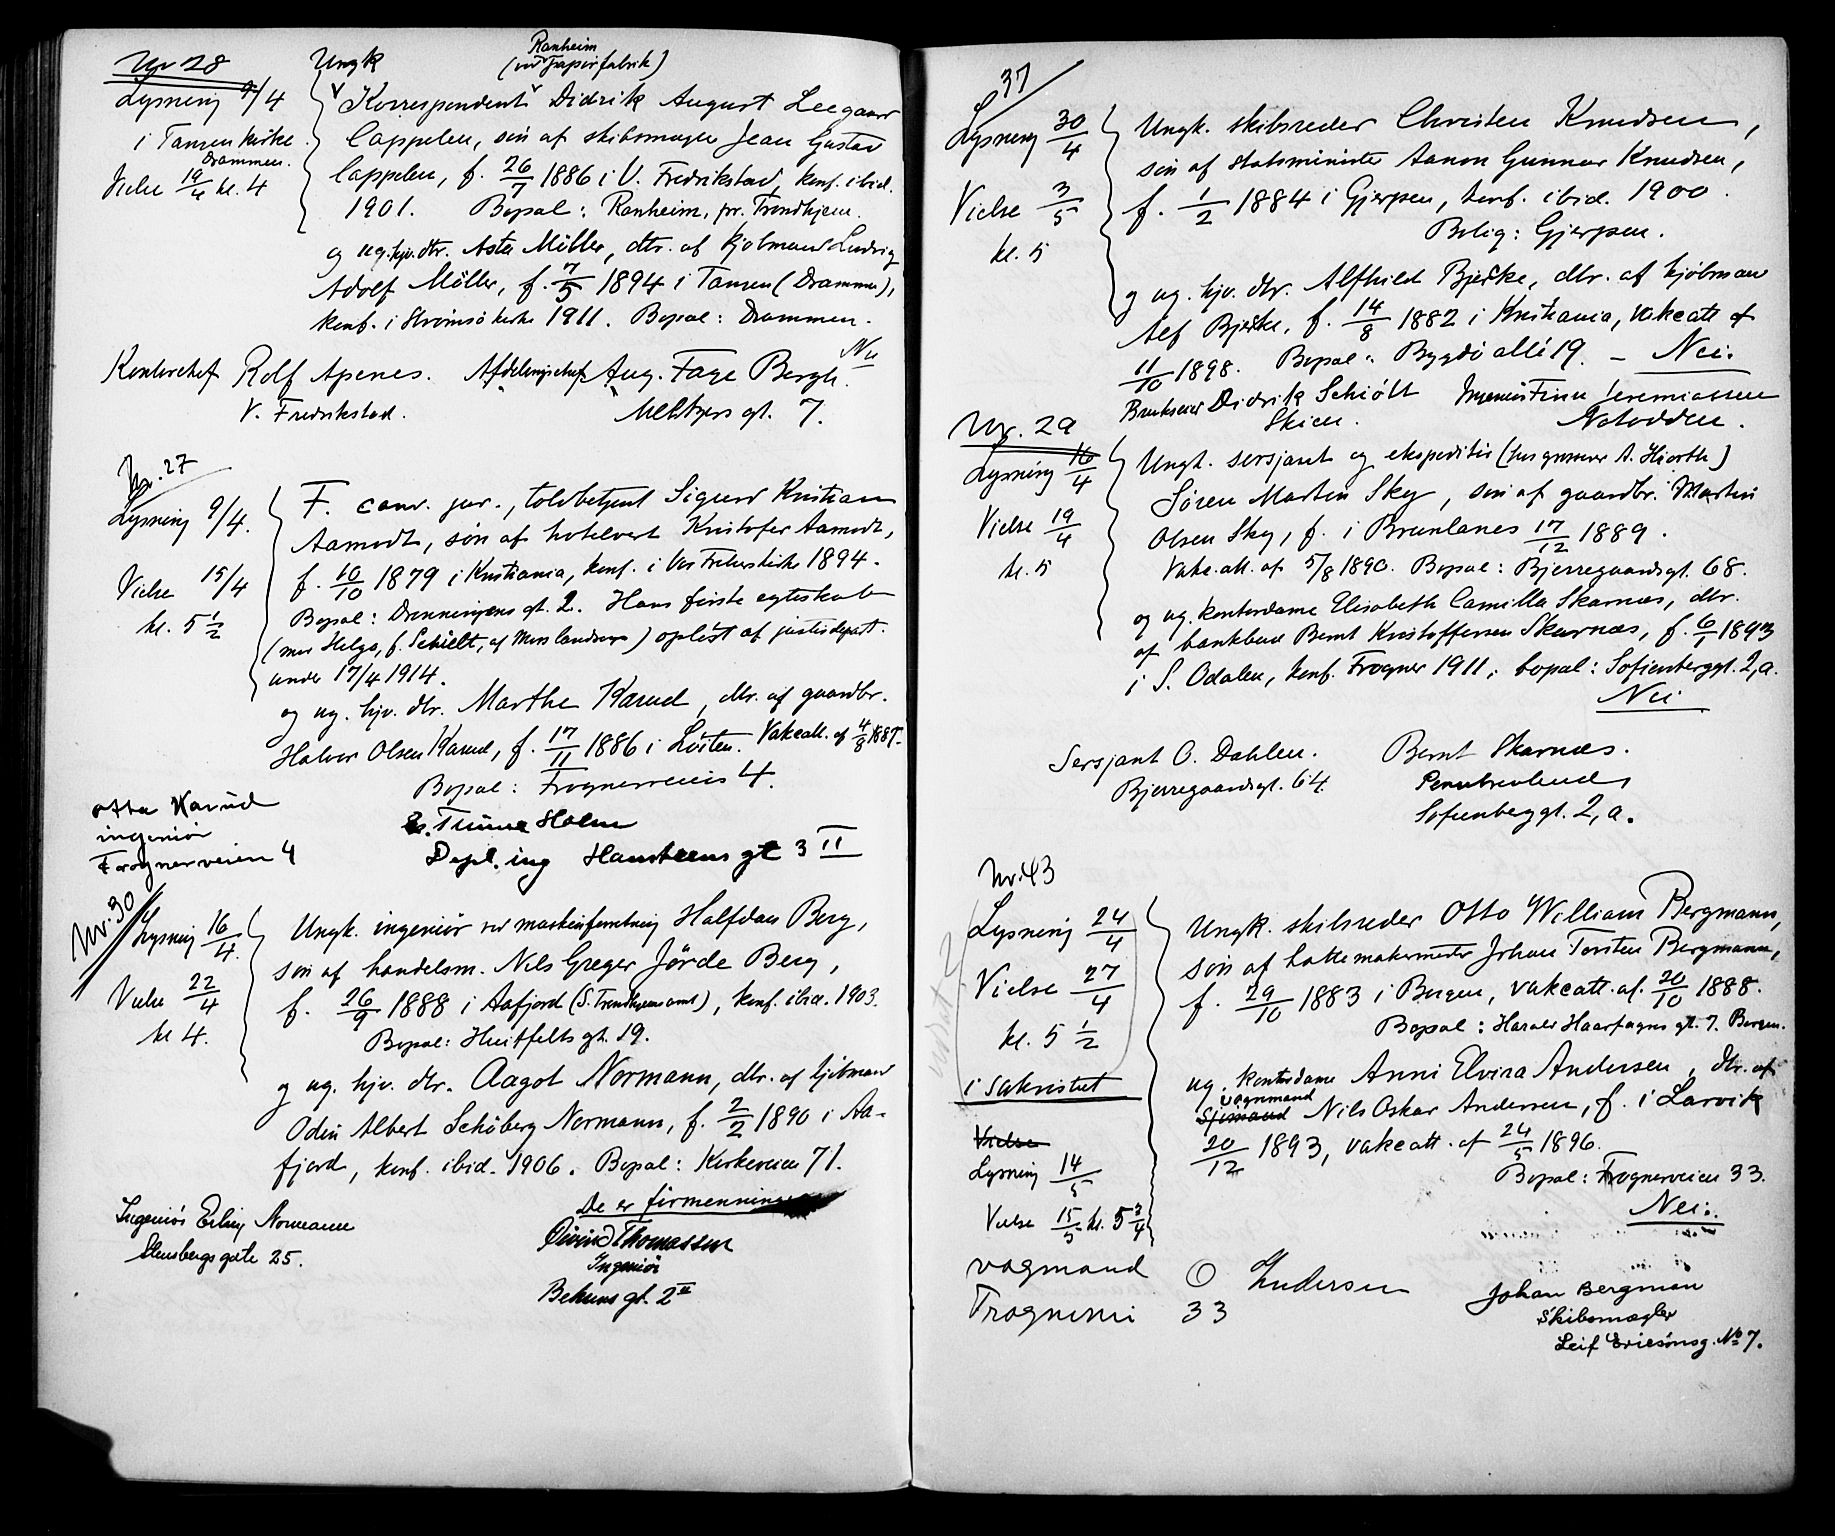 Nr 28
Ungk
Ranheim
(ved Papirfabrik)
Lysning 9/4
i Tansen kirke
Drammen.
Vielse 19/4 kl. 4
Korrespondent Didrik August Leegaard
Cappelen, søn af skibsmægler Jean Gustav
Cappelen, f. 26/7 1886 i V. Fredrikstad, konf. ibid.
1901. Bopæl: Ranheim, pr. Trondhjem.
og ug. hjv. dtr. Asta Möller, dtr. af kjøbmand Ludvig
Adolf Möller, f. 7/5 1894 i Tansen (Drammen),
konf. i Strömsö kirke 1911. Bopæl: Drammen.
Nei
Kontorchef Rolf Apenes. Afdelingschef Aug. Fage Bergh.
V. Fredrikstad. Meltzers gt. 7.
Nr. 27
Lysning 9/4.
Vielse 15/4
kl. 5 1/2
F. cand. jur., toldbetjent Sigurd Kristian
Aamodt, søn af hotelvert Kristofer Aamodt,
f. 10/10 1879 i Kristiania, konf. i Vor Frelsers kirke 1894.
Bopæl: Dronningens gt. 2. Hans første egteskab
(med Helga, f. Schieldt, af Moss landsogn) opløst af justisdepart.
under 17/4 1914.
og ug. hjv. dtr. Marthe Karud, dtr. af gaardbr.
Halvor Olsen Karud, f. 17/11 1886 i Løiten. Vakcatt. af 4/8 1887.
Bopæl: Frognerveien 4.
Otto Karud
ingeniør
Frognerveien 4
Holm
Dipl. ing Hansteens gt 3 II
Nr. 30
Lysning 16/4.
Vielse 22/4
kl 4.
Ungk. ingeniør ved maskinforretning Halfdan Berg,
søn af handelsm. Nils Greger Jörde Berg,
f. 26/9 1888 i Aafjord (S. Trondhjems amt), konf. ibid. 1903.
Bopæl: Huitfeldts gt. 19.
og ug. hjv. dtr. Aagot Normann, dtr. af kjøbmand
Odin Albert Schöberg Normann, f. 2/2 1890 i Aa-
fjord, konf. ibid. 1906. Bopæl: Kirkeveien 71.
De er firmenninger
Ingeniør Erling Normann
Stensbergsgate 25.
Øivind Thomassen
Ingeniør
Behrens gt. 2 II
37
Lysning 30/4
Vielse 3/5
kl. 5
Ungk. skibsreder Christen Knudsen,
søn af statsminister Aanon Gunnar Knudsen,
f. 1/2 1884 i Gjerpen, konf. ibid. 1900.
Bolig: Gjerpen.
og ug. hjv. dtr. Alfhild Bjerke, dtr. af kjøbman
Alf Bjerke, f. 14/8 1882 i Kristiania, vakcatt af
11/10 1898. Bopæl: Bygdö allé 19. – Nei.
Brukseier Didrik Schiött Ingeniør Finn Jeremiassen
Skien. Notodden.
Nr. 29
Lysning 16/4
Vielse 19/4
kl. 5
Ungk. sersjant og ekspeditør (hos grosserer A. Hiorth)
Sören Martin Sky, søn af gaardbr. Martin
Olsen Sky, f. i Brunlanes 17/12 1889.
Vakc. att. af 5/8 1890. Bopæl: Bjerregaardsgt. 68.
og ug. kontordame Elisabeth Camilla Skarnæs, dtr.
af bankbud Bernt Kristoffersen Skarnæs, f. 6/1 1893
i S. Odalen, konf. Frogner 1911. bopæl: Sofienberggt. 2, a.
Nei
Sersjant O. Dahlen.
Bjerregaardsgt. 64.
Bernt Skarnæs.
Sofienberggt. 2, a.
Nr. 43
Lysning 24/4
Vielse 27/4
kl. 5 1/2
i sakristiet
Vielse
Lysning 14/5
Vielse 15/5 kl. 5 3/4
Ungk. skibsreder Otto William Bergmann,
søn af hattemakermester Johan Torsten Bergmann,
f. 29/10 1883 i Bergen, vakcatt. af. 20/10 1888.
Bopæl: Harald Haarfagres gt. 7. Bergen.
ug. kontordame Anni Elvira Andersen, dtr. af
vognmand
Sjömand Nils Oskar Andersen, f. i Larvik
20/12 1893, vakcatt. af 24/5 1896.
Bopæl: Frognerveien 33.
Nei.
vogmand O Andersen
33
Johan Bergman
Skibsmægler
Leif Ericsønsg. No 7.